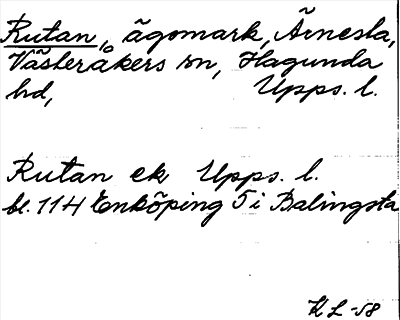 Rutan, ägomark, Ärnesta,
Västeråkers sn, Hagunda
hd, Upps. l.
Rutan ek Upps. l.
bl. 114 Enköping 5 i Balingsta
K L -58